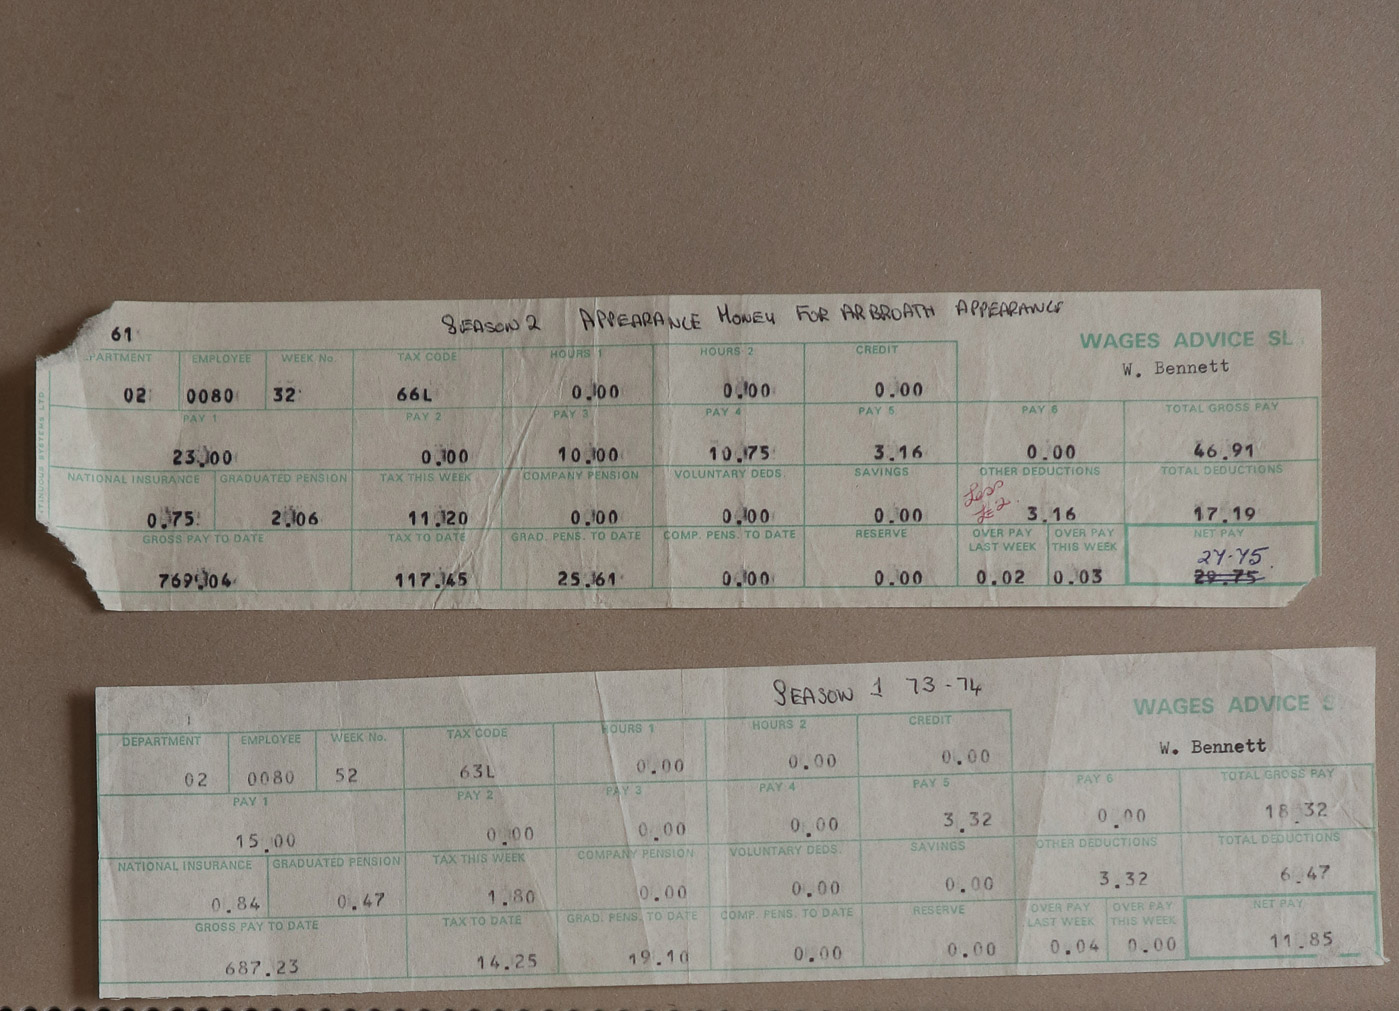 SEASON 2 APPEARANCE MONEY FOR ARBROATH APPEARANCE
61
WAGES ADVICE SL
W. Bennett
PARTMENT EMPLOYEE WEEK No. TAX CODE HOURS 1 HOURS 2 CREDIT
02 0080 32 66L 0.00 0.00 0.00
PAY 1 PAY 2 PAY 3 PAY 4 PAY 5 PAY 6 TOTAL GROSS PAY
23.00 0.00 10.00 10.75 3.16 0.00 46.91
NATIONAL INSURANCE GRADUATED PENSION TAX THIS WEEK COMPANY PENSION VOLUNTARY DEDS. SAVINGS OTHER DEDUCTIONS TOTAL DEDUCTIONS
Less £2.
0.75 2.06 11.20 0.00 0.00 0.00 3.16 17.19
GROSS PAY TO DATE TAX TO DATE GRAD. PENS. TO DATE COMP. PENS. TO DATE RESERVE OVER PAY LAST WEEK OVER PAY THIS WEEK NET PAY
27.75.
769.04 117.45 25.61 0.00 0.00 0.02 0.03 29.75
SEASON 1 73-74
WAGES ADVICE S
W. Bennett
DEPARTMENT EMPLOYEE WEEK No. TAX CODE HOURS 1 HOURS 2 CREDIT
02 0080 52 63L 0.00 0.00 0.00
PAY 1 PAY 2 PAY 3 PAY 4 PAY 5 PAY 6 TOTAL GROSS PAY
15.00 0.00 0.00 0.00 3.32 0.00 18.32
NATIONAL INSURANCE GRADUATED PENSION TAX THIS WEEK COMPANY PENSION VOLUNTARY DEDS. SAVINGS OTHER DEDUCTIONS TOTAL DEDUCTIONS
0.84 0.47 1.80 0.00 0.00 0.00 3.32 6.47
GROSS PAY TO DATE TAX TO DATE GRAD. PENS. TO DATE COMP. PENS. TO DATE RESERVE OVER PAY LAST WEEK OVER PAY THIS WEEK NET PAY
687.23 14.25 19.10 0.00 0.00 0.04 0.00 11.85